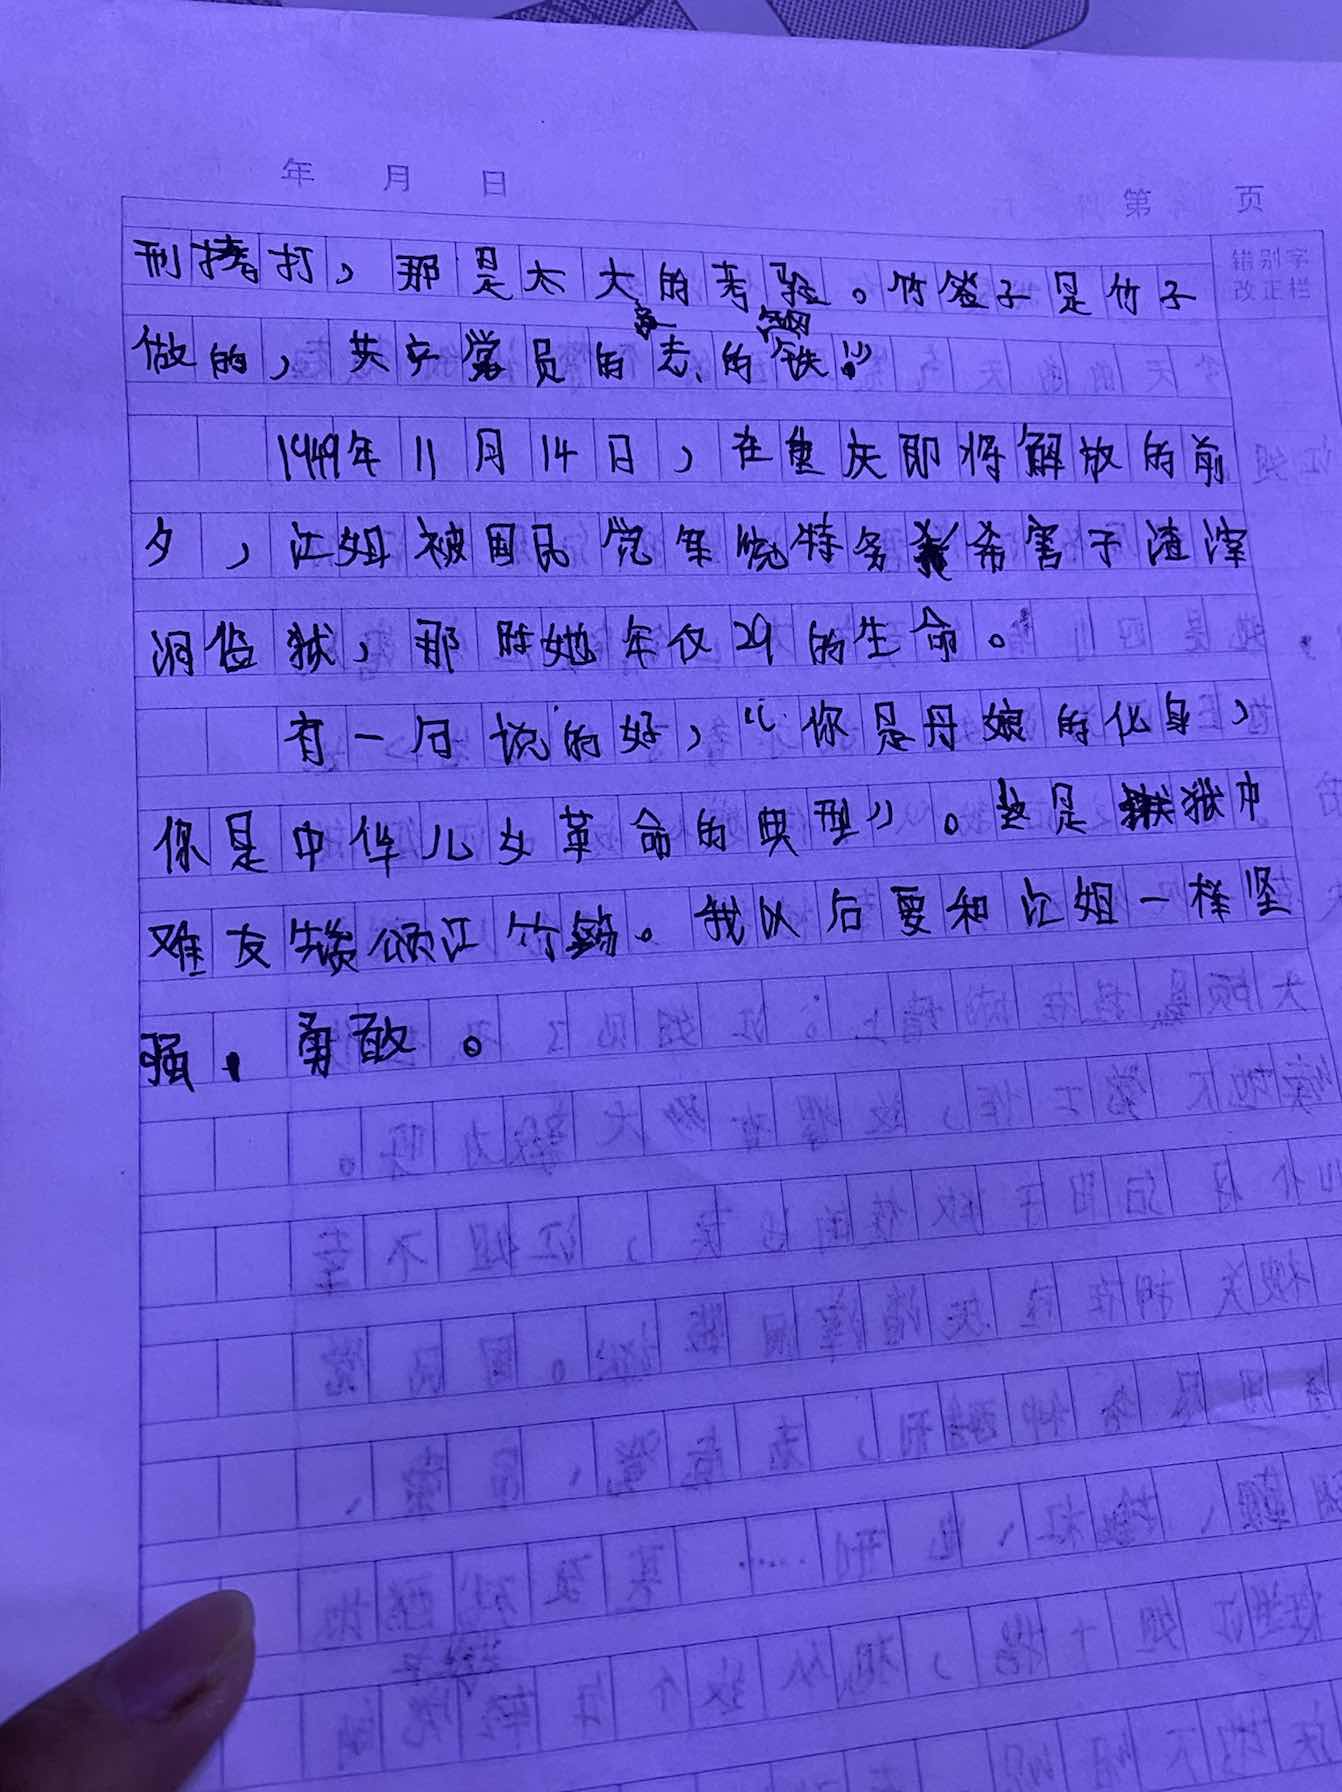 年 月 日
第 页
错别字
改正栏
刑拷打，那是太大的考验。竹签子是竹子
做的，共产党员的意志的钢铁！”
1949年11月14日，在重庆即将解放的前
夕，江姐被国民党军统特务杀害于渣滓
洞监狱，那时她年仅29的生命。
有一句说的好，“你是丹娘的化身，
你是中华儿女革命的典型”。这是狱中
难友赞颂江竹筠。我以后要和江姐一样坚
强，勇敢。